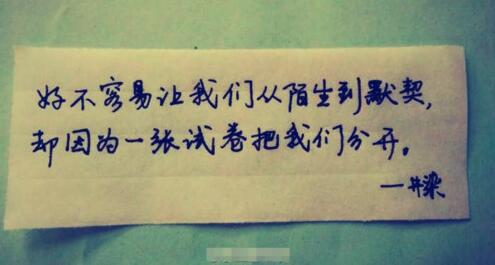 好不容易让我们从陌生到默契,
却因为一张试卷把我们分开。
—井染